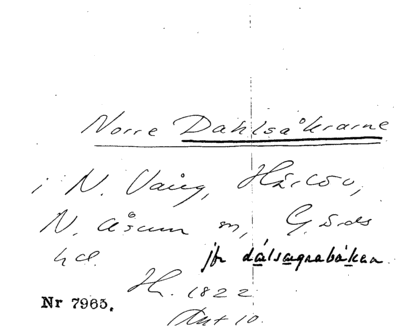 Norre Dahlsåkrarne
i N. Vång, Härlöv,
N. Åsum sn, G. ds
hd. jfr dálsagnabákan
H. 1822
Akt 10.
Nr 7965.